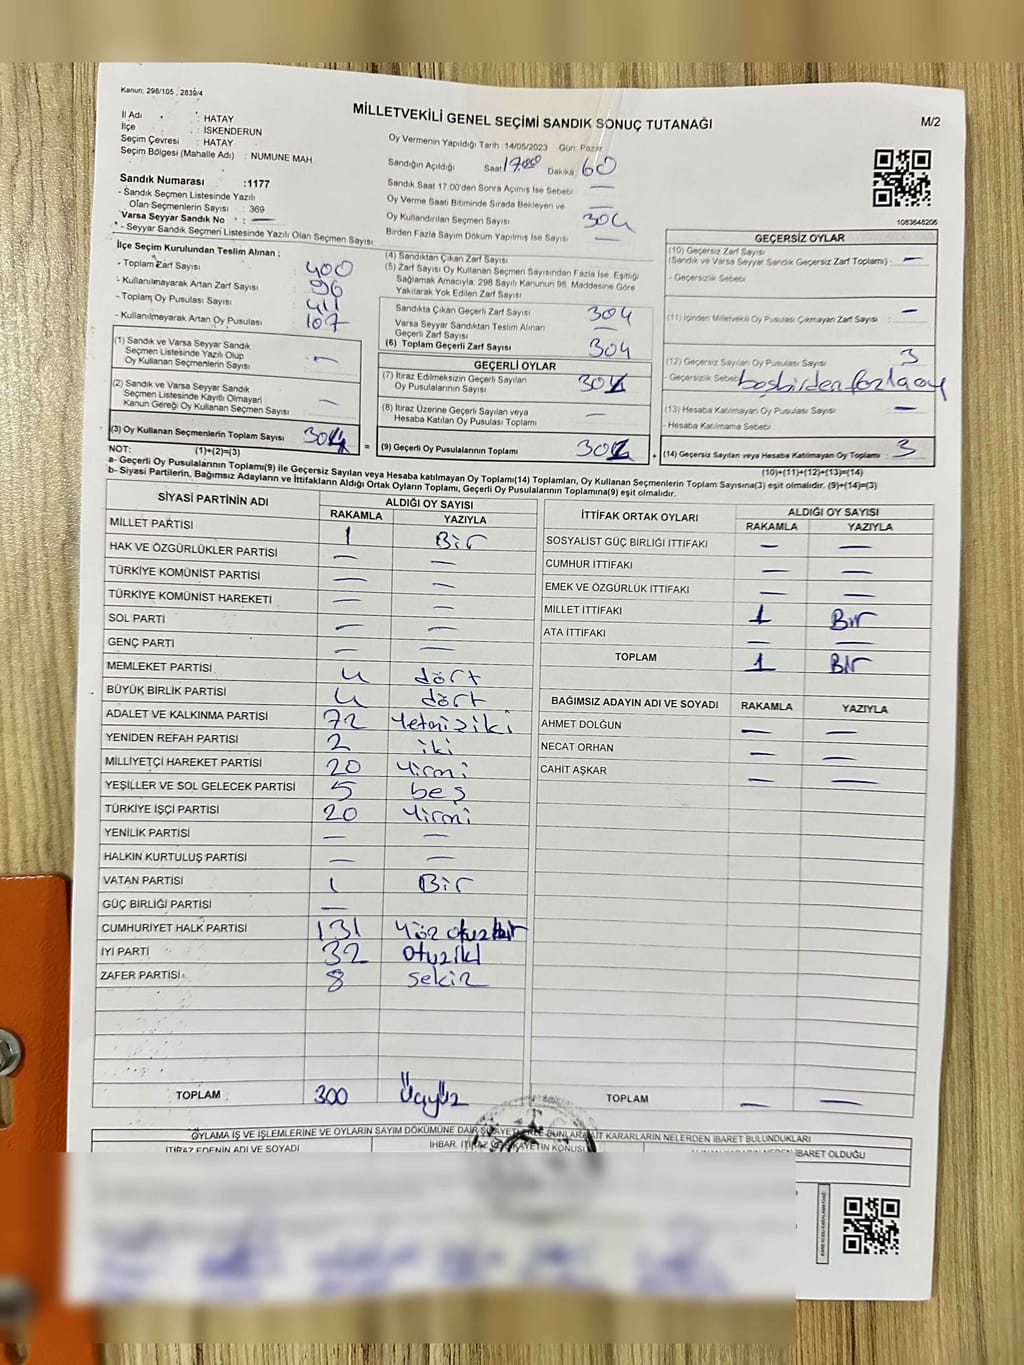 Kanun: 298/105 , 2839/4
MİLLETVEKİLİ GENEL SEÇİMİ SANDIK SONUÇ TUTANAĞI
M/2
İl Adı : HATAY
İlçe : İSKENDERUN
Seçim Çevresi : HATAY
Seçim Bölgesi (Mahalle Adı) : NUMUNE MAH
Sandık Numarası :1177
- Sandık Seçmen Listesinde Yazılı
Olan Seçmenlerin Sayısı : 369
Varsa Seyyar Sandık No : —
- Seyyar Sandık Seçmen Listesinde Yazılı Olan Seçmen Sayısı:
Oy Vermenin Yapıldığı Tarih :14/05/2023 Gün: Pazar
Sandığın Açıldığı Saat 17:00 Dakika 60
Sandık Saat 17:00'den Sonra Açımış İse Sebebi —
Oy Verme Saati Bitiminde Sırada Bekleyen ve
Oy Kullandırılan Seçmen Sayısı 304
Birden Fazla Sayım Döküm Yapılmış İse Sayısı —
1083648206
İlçe Seçim Kurulundan Teslim Alınan ;
- Toplam Zarf Sayısı 400
- Kullanılmayarak Artan Zarf Sayısı 96
- Toplam Oy Pusulası Sayısı 411
- Kullanılmayarak Artan Oy Pusulası 107
(1) Sandık ve Varsa Seyyar Sandık
Seçmen Listesinde Yazılı Olup
Oy Kullanan Seçmenlerin Sayısı —
(2) Sandık ve Varsa Seyyar Sandık
Seçmen Listesinde Kayıtlı Olmayan
Kanun Gereği Oy Kullanan Seçmen Sayısı —
(3) Oy Kullanan Seçmenlerin Toplam Sayısı 304
(1)+(2)=(3)
(4) Sandıktan Çıkan Zarf Sayısı
(5) Zarf Sayısı Oy Kullanan Seçmen Sayısından Fazla İse, Eşitliği
Sağlamak Amacıyla, 298 Sayılı Kanunun 98. Maddesine Göre
Yakılarak Yok Edilen Zarf Sayısı
Sandıkta Çıkan Geçerli Zarf Sayısı 304
Varsa Seyyar Sandıktan Teslim Alınan
Geçerli Zarf Sayısı —
(6) Toplam Geçerli Zarf Sayısı 304
GEÇERLİ OYLAR
(7) İtiraz Edilmeksizin Geçerli Sayılan
Oy Pusulalarının Sayısı
(8) İtiraz Üzerine Geçerli Sayılan veya
Hesaba Katılan Oy Pusulası Toplamı —
= (9) Geçerli Oy Pusulalarının Toplamı
GEÇERSİZ OYLAR
(10) Geçersiz Zarf Sayısı
(Sandık ve Varsa Seyyar Sandık Geçersiz Zarf Toplamı) : —
- Geçersizlik Sebebi
(11) İçinden Milletvekili Oy Pusulası Çıkmayan Zarf Sayısı : —
(12) Geçersiz Sayılan Oy Pusulası Sayısı 3
- Geçersizlik Sebebi boşbirden fazla oy
(13) Hesaba Katılmayan Oy Pusulası Sayısı —
- Hesaba Katılmama Sebebi
+ (14) Geçersiz Sayılan veya Hesaba Katılmayan Oy Toplamı : 3
(10)+(11)+(12)+(13)=(14)
NOT:
a- Geçerli Oy Pusulalarının Toplamı(9) ile Geçersiz Sayılan veya Hesaba katılmayan Oy Toplamı(14) Toplamları, Oy Kullanan Seçmenlerin Toplam Sayısına(3) eşit olmalıdır. (9)+(14)=(3)
b- Siyasi Partilerin, Bağımsız Adayların ve İttifakların Aldığı Ortak Oyların Toplamı, Geçerli Oy Pusulalarının Toplamına(9) eşit olmalıdır.
SİYASİ PARTİNİN ADI ALDIĞI OY SAYISI
RAKAMLA YAZIYLA
MİLLET PARTİSİ 1 Bir
HAK VE ÖZGÜRLÜKLER PARTİSİ — —
TÜRKİYE KOMÜNİST PARTİSİ — —
TÜRKİYE KOMÜNİST HAREKETİ — —
SOL PARTİ — —
GENÇ PARTİ — —
MEMLEKET PARTİSİ 4 dört
BÜYÜK BİRLİK PARTİSİ 4 dört
ADALET VE KALKINMA PARTİSİ 72 Yetmişiki
YENİDEN REFAH PARTİSİ 2 iki
MİLLİYETÇİ HAREKET PARTİSİ 20 Yirmi
YEŞİLLER VE SOL GELECEK PARTİSİ 5 beş
TÜRKİYE İŞÇİ PARTİSİ 20 Yirmi
YENİLİK PARTİSİ — —
HALKIN KURTULUŞ PARTİSİ — —
VATAN PARTİSİ 1 Bir
GÜÇ BİRLİĞİ PARTİSİ —
CUMHURİYET HALK PARTİSİ 131 Yüz otuz bir
İYİ PARTİ 32 otuziki
ZAFER PARTİSİ 8 sekiz
TOPLAM 300 Üçyüz
İTTİFAK ORTAK OYLARI ALDIĞI OY SAYISI
RAKAMLA YAZIYLA
SOSYALİST GÜÇ BİRLİĞİ İTTİFAKI — —
CUMHUR İTTİFAKI — —
EMEK VE ÖZGÜRLÜK İTTİFAKI — —
MİLLET İTTİFAKI 1 Bir
ATA İTTİFAKI — —
TOPLAM 1 Bir
BAĞIMSIZ ADAYIN ADI VE SOYADI RAKAMLA YAZIYLA
AHMET DOLĞUN — —
NECAT ORHAN — —
CAHİT AŞKAR — —
TOPLAM — —
OYLAMA İŞ VE İŞLEMLERİNE VE OYLARIN SAYIM DÖKÜMÜNE DAİR ŞİKAYETLERLE BUNLARA AİT KARARLARIN NELERDEN İBARET BULUNDUKLARI
İTİRAZ EDENİN ADI VE SOYADI İHBAR, İTİRAZ VE ŞİKAYETİN KONUSU İBARET OLDUĞU